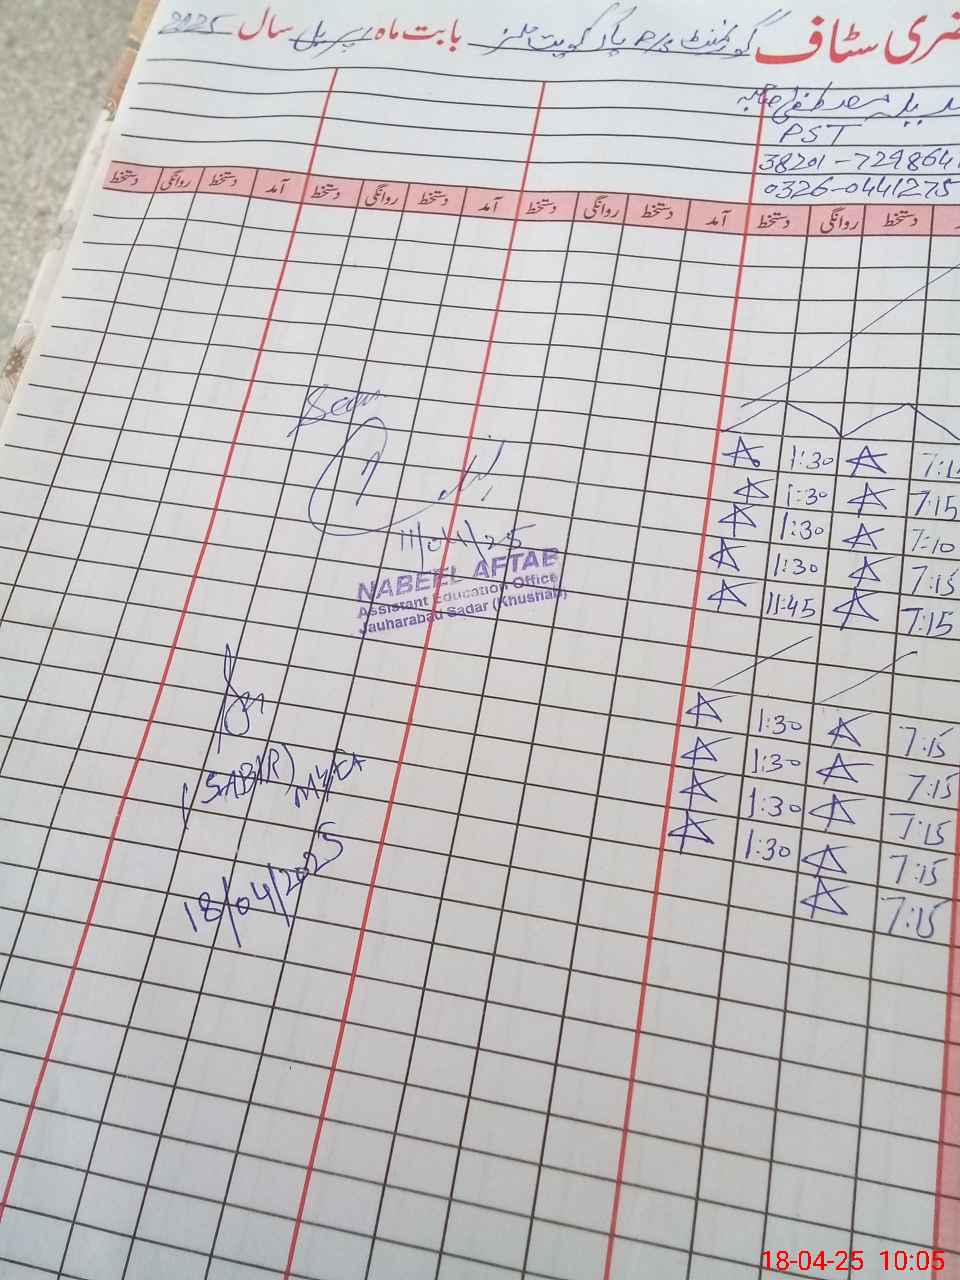 ضری سٹاف گورنمنٹ P/S بابت ماہ اپریل سال 2025
PST
38201-7298641
0326-0441275
آمد دستخط روانگی دستخط آمد دستخط روانگی دستخط آمد دستخط روانگی دستخط
Seen
7:15 1:30
7:15 1:30
7:10 1:30
7:15 1:30
7:15 11:45
11/04/25
NABEEL AFTAB
Assistant Education Office
Jauharabad Sadar (Khushab)
7:15 1:30
7:15 1:30
7:15 1:30
7:15 1:30
7:15
(SABIR)
18/04/2025
18-04-25 10:05